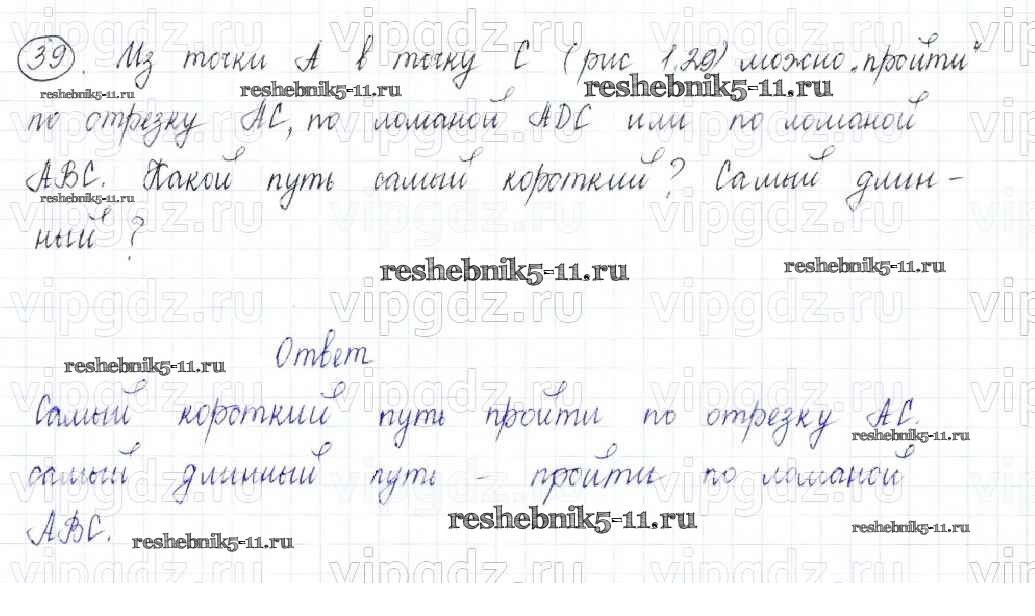 39. Из точки А в точку С (рис 1.29) можно „пройти"
reshebnik5-11.ru reshebnik5-11.ru reshebnik5-11.ru
по отрезку АС, по ломаной ADC или по ломаной
АВС. Какой путь самый короткий? Самый длин-
reshebnik5-11.ru
ный?
reshebnik5-11.ru reshebnik5-11.ru
vipgdz.ru vipgdz.ru vipgdz.ru
Ответ
reshebnik5-11.ru
Самый короткий путь пройти по отрезку АС.
reshebnik5-11.ru
самый длинный путь - пройти по ломаной
АВС.
reshebnik5-11.ru reshebnik5-11.ru reshebnik5-11.ru